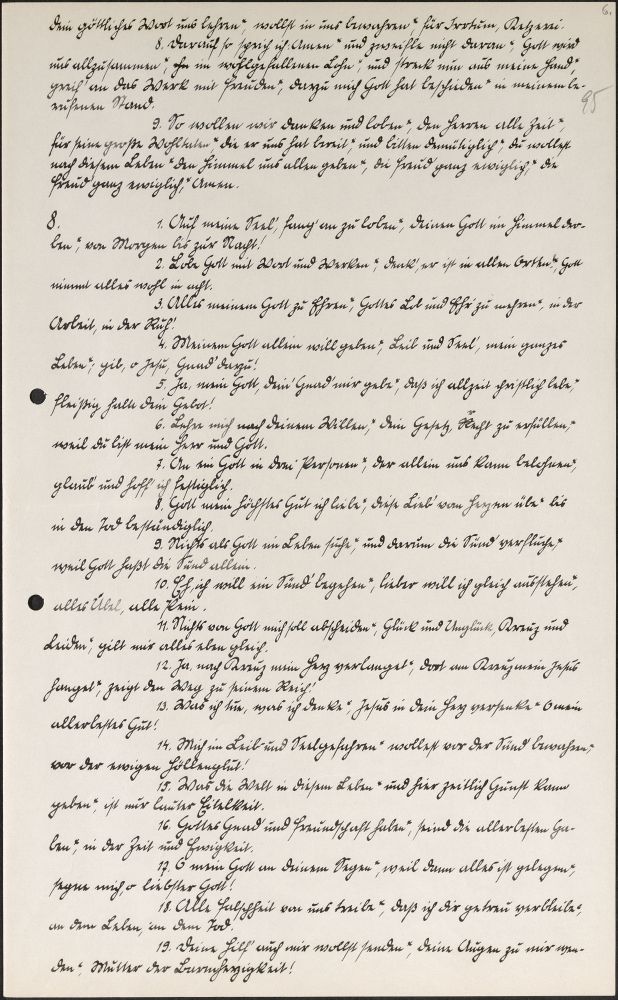 6.
dein göttliches Wort uns lehren", wollst in uns bewahren" für Irrtum, Ketzerei.
8. Darauf so sprich ich Amen" und zweifle nicht daran", Gott wird
uns allzusammen", in wohlgefallenen Lohn", und streck nun aus meine Hand",
greif an das Werk mit Freuden", dazu mich Gott hat beschieden" in meinem be-
rufenen Stand.
95
9. So wollen wir danken und loben", den Herren alle Zeit",
für seine große Wohltaten" die er uns hat bereit", und bitten demütiglich", du wollest
nach diesem Leben" den Himmel uns allen geben", die Freud ganz ewiglich," die
Freud ganz ewiglich," Amen.
8.
1. Auf meine Seel', fang' an zu loben", deinen Gott im Himmel dro-
ben", von Morgen bis zur Nacht!
2. Lobe Gott mit Wort und Werken", denk', er ist in allen Orten", Gott
nimmt alles wohl in acht.
3. Alles meinem Gott zu Ehren", Gottes Lob und Ehr' zu mehren", in der
Arbeit, in der Ruh'.
4. Meinem Gott allein will geben", Leib und Seel', mein ganzes
Leben", gib, o Jesu, Gnad' dazu!
5. Ja, mein Gott, dein' Gnad' mir gebe", daß ich allzeit christlich lebe",
fleißig halt dein Gebot!
6. Lehre mich nach deinem Willen," dein Gesetz, Recht zu erfüllen,"
weil du bist mein Herr und Gott.
7. An ein Gott in drei Personen", der allein uns kann belohnen",
glaub' und hoff' ich festiglich.
8. Gott mein höchstes Gut ich liebe", diese Lieb' von Herzen übe" bis
in den Tod beständiglich.
9. Nichts als Gott im Leben suche", und darum die Sünd' verfluche",
weil Gott haßt die Sünd' allein.
10. Eh' ich will ein Sünd' begehen", lieber will ich gleich ausstehen",
alles Übel, alle Pein.
11. Nichts von Gott mich soll abscheiden", Glück und Unglück, Kreuz und
Leiden", gilt mir alles eben gleich.
12. Ja, nach Kreuz mein Herz verlanget", dort am Kreuz mein Jesus
hanget", zeigt den Weg zu seinem Reich!
13. Was ich tue, was ich denke", Jesus in dein Herz versenke" O mein
allerbestes Gut!
14. Mich in Leib- und Seelgefahren" wollest vor der Sünd' bewahren,"
vor der ewigen Höllenglut!
15. Was die Welt in diesem Leben" und hier zeitlich Gunst kann
geben", ist nur lauter Eitelkeit.
16. Gottes Gnad' und Freundschaft haben", seind die allerbesten Ga-
ben", in der Zeit und Ewigkeit.
17. O mein Gott an deinem Segen", weil dann alles ist gelegen",
segne mich, o liebster Gott!
18. Alle Falschheit von uns treibe", daß ich dir getreu verbleibe",
an dem Leben, in dem Tod.
19. Deine Hilf' auch mir wollst senden", deine Augen zu mir wen-
den", Mutter der Barmherzigkeit!